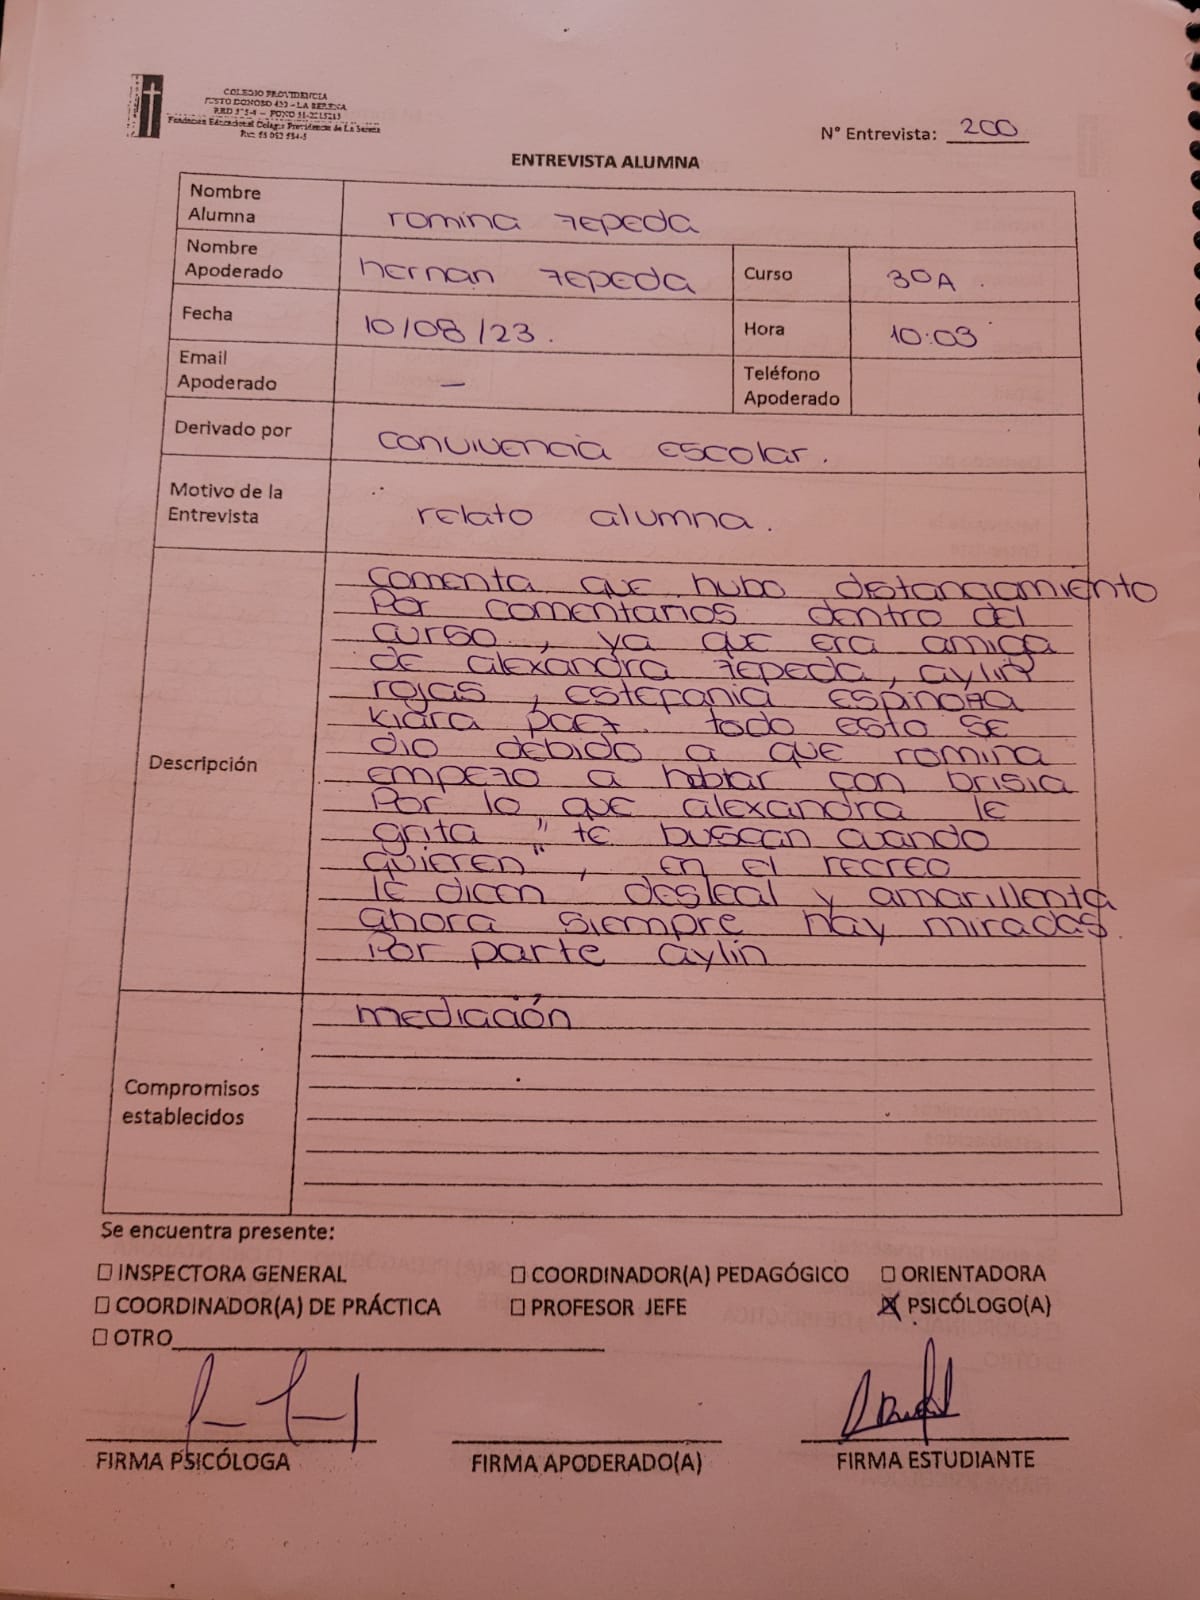 COLEGIO PROVIDENCIA
JUSTO DONOSO 420 - LA SERENA
Fundación Educacional Colegio Providencia de La Serena
N° Entrevista: 200
ENTREVISTA ALUMNA
Nombre Alumna romina zepeda
Nombre Apoderado hernan zepeda Curso 3ºA.
Fecha 10/08/23. Hora 10:03
Email Apoderado - Teléfono Apoderado
Derivado por convivencia escolar.
Motivo de la Entrevista relato alumna.
Descripción
comenta que hubo distanciamiento
Por comentarios dentro del
curso, ya que era amiga
de alexandra zepeda, aylin
rojas, estefania espinoza
Kiara paez. todo esto se
dio debido a que romina
empezo a hablar con brisia
Por lo que alexandra le
grita "te buscan cuando
quieren", en el recreo
le dicen desleal y amarillenta
ahora siempre hay miradas.
Por parte aylin
Compromisos establecidos
mediación
Se encuentra presente:
☐ INSPECTORA GENERAL ☐ COORDINADOR(A) PEDAGÓGICO ☐ ORIENTADORA
☐ COORDINADOR(A) DE PRÁCTICA ☐ PROFESOR JEFE ☒ PSICÓLOGO(A)
☐ OTRO
FIRMA PSICÓLOGA FIRMA APODERADO(A) FIRMA ESTUDIANTE